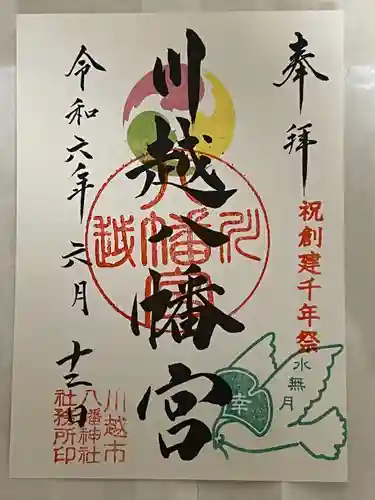 奉拝
祝創建千年祭
水無月
幸
川越八幡宮
川越
八幡宮
令和六年六月十三日
川越市
八幡神社
社務所印